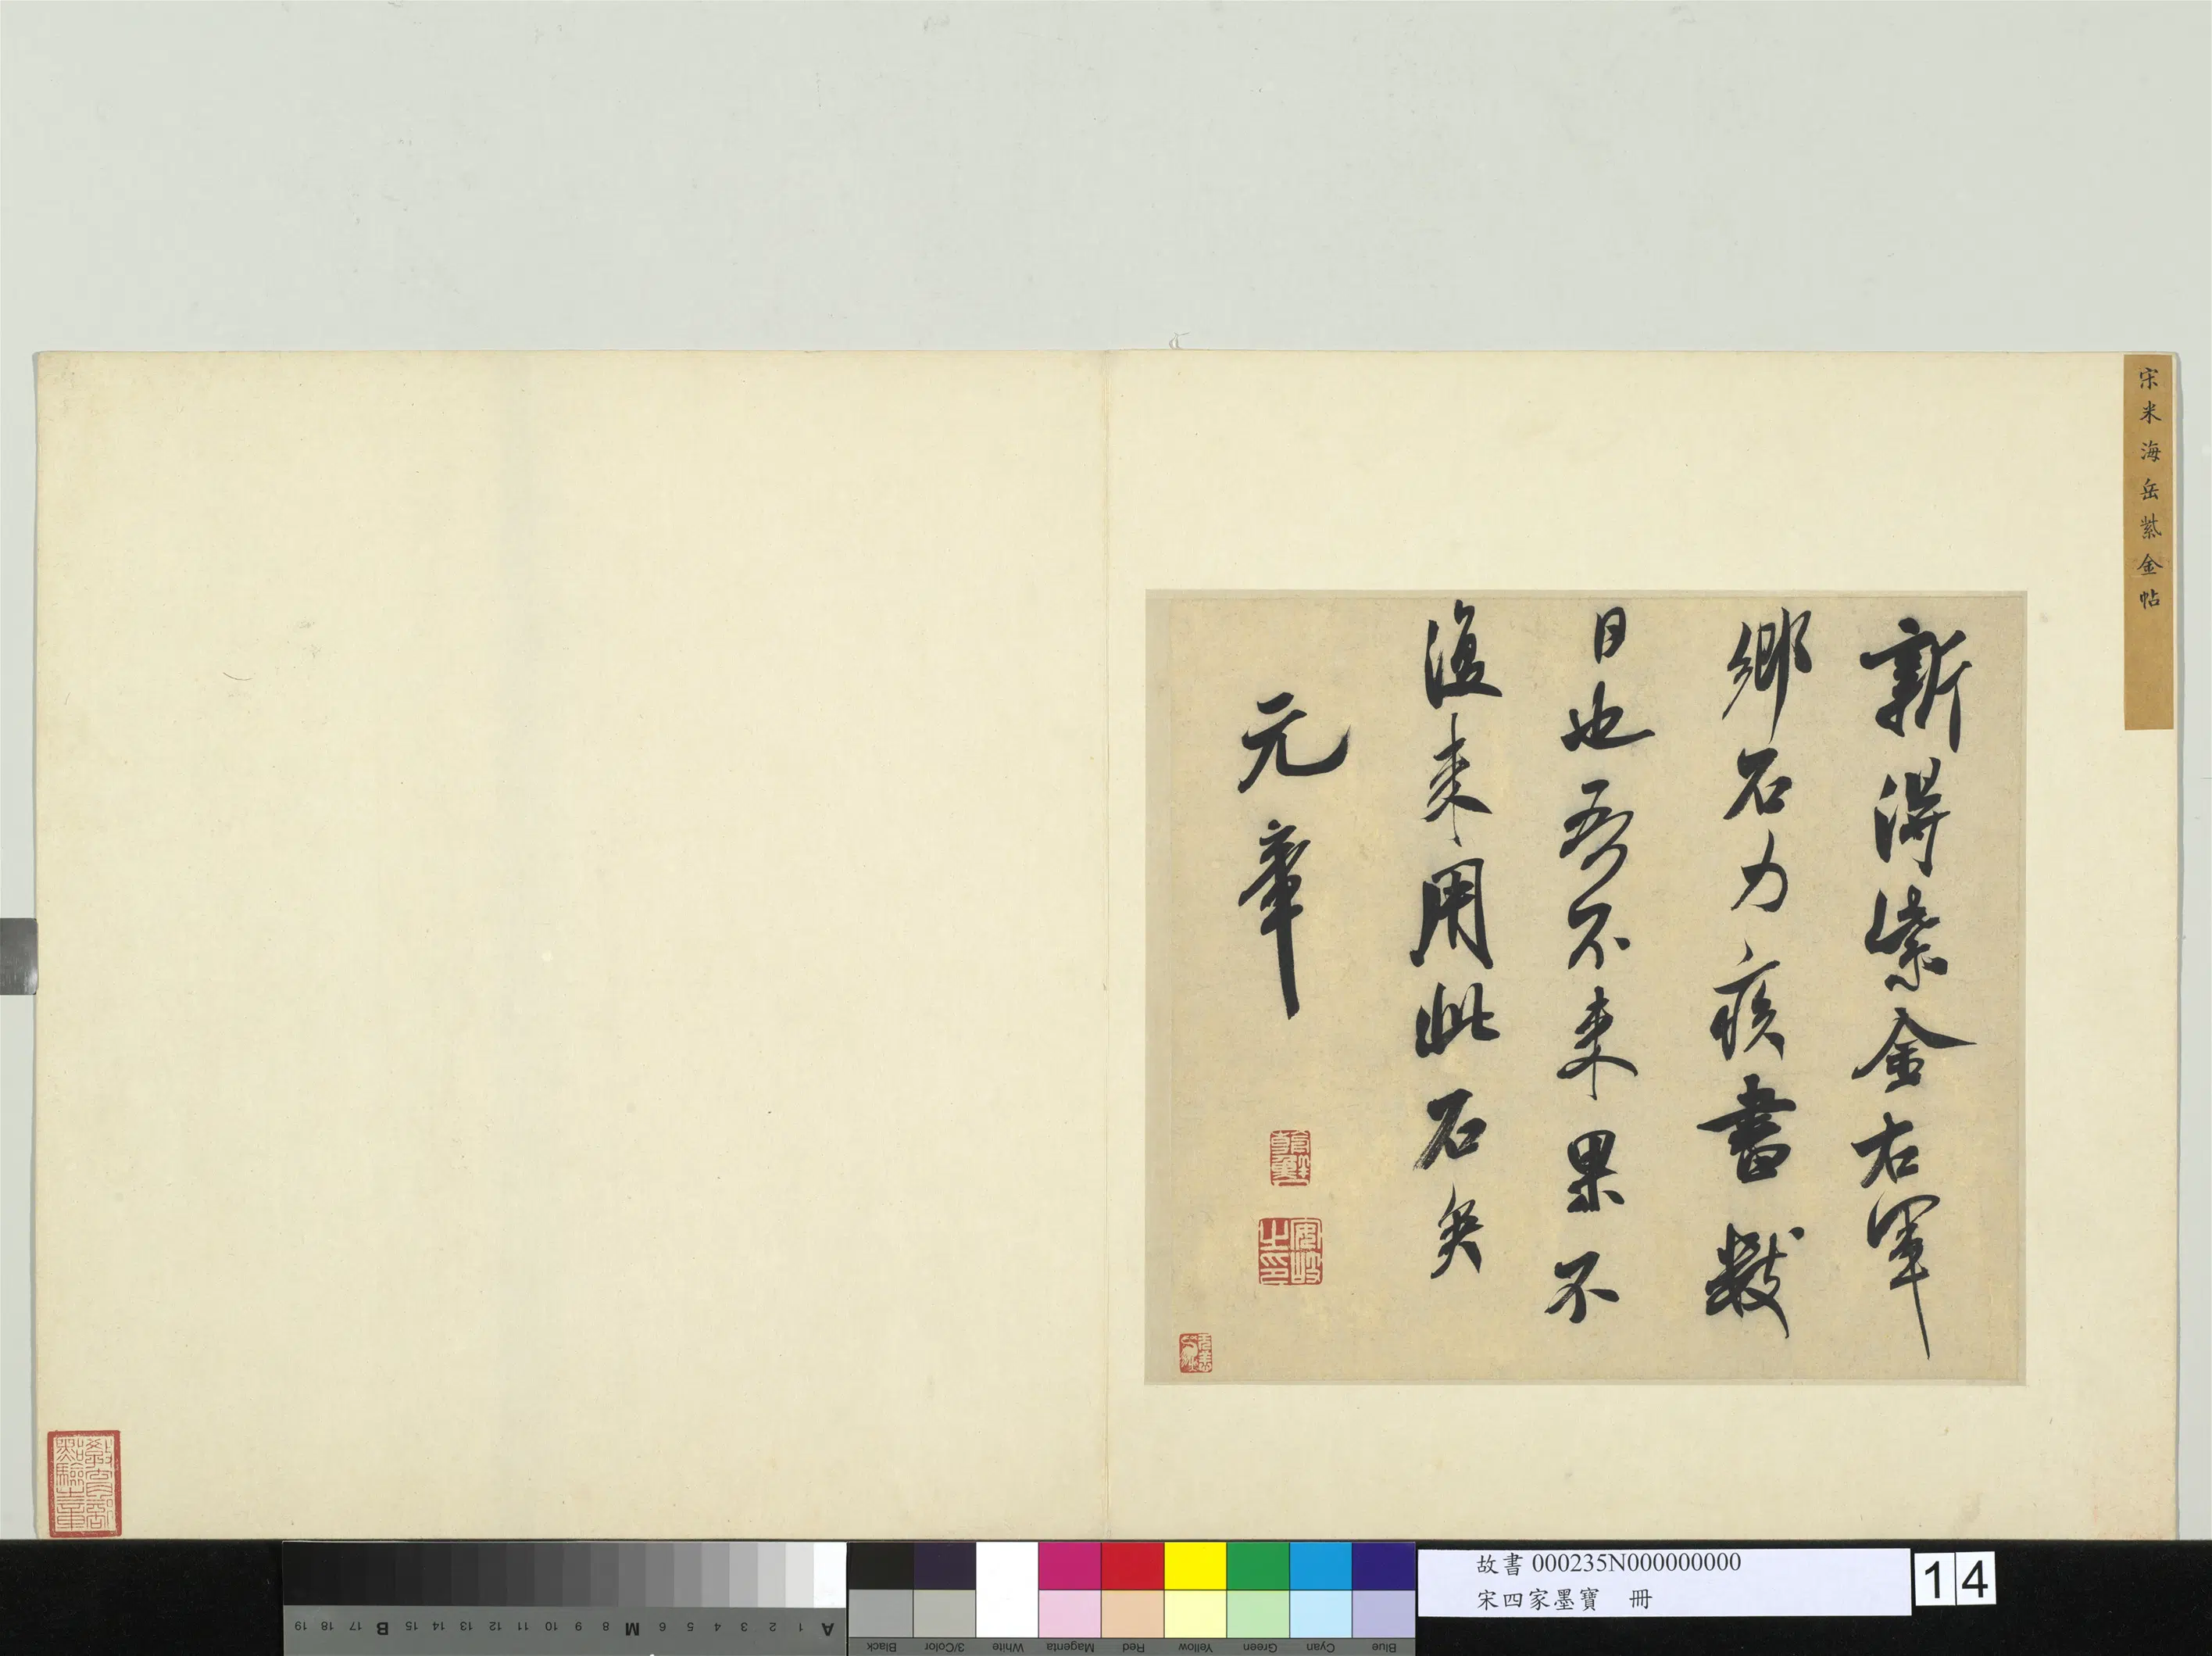 宋米海岳紫金帖
新得紫金右軍
鄉石力疾書數
日也吾不來果不
復来用此石矣
元章
安岐之印
故書 000235N000000000
宋四家墨寶 冊
14
A 1 2 3 4 5 6 M 8 9 10 11 12 13 14 15 B 17 18 19
Black 3/Color White Magenta Red Yellow Green Cyan Blue